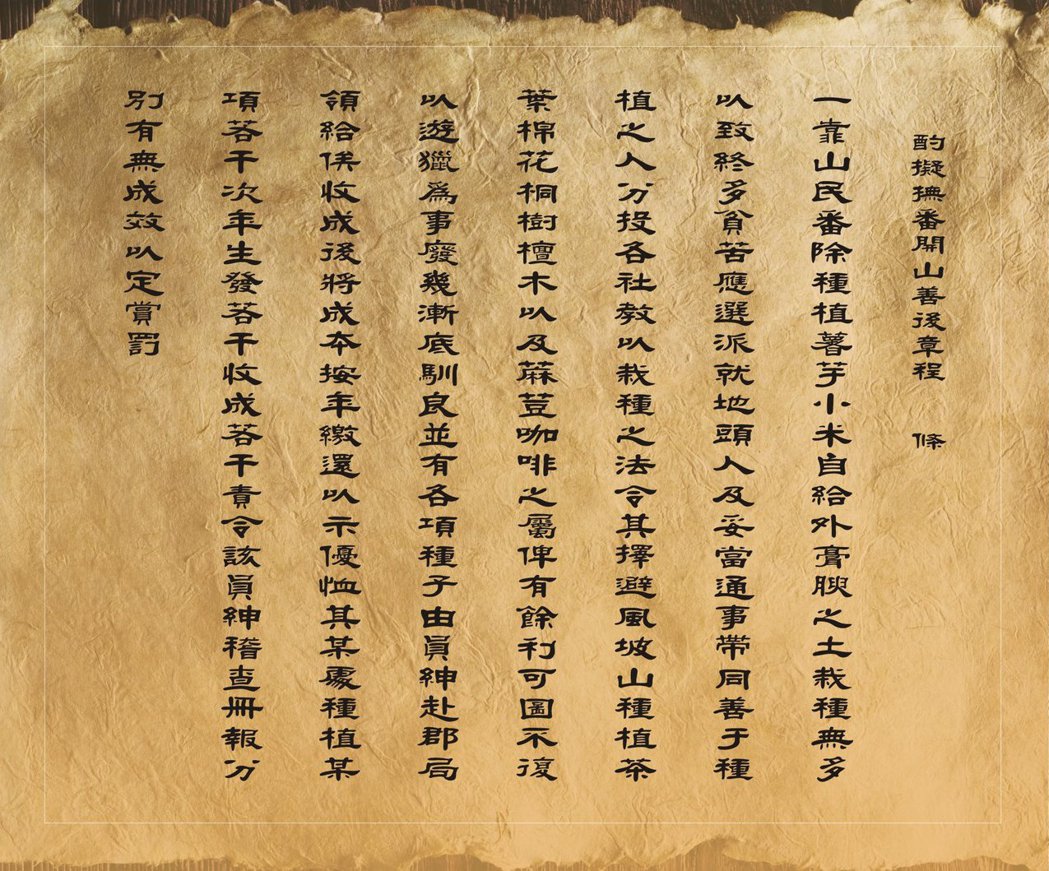 酌擬撫番開山善後章程　條
一靠山民番除種植薯芋小米自給外膏腴之土栽種無多
以致終多貧苦應選派就地頭人及妥當通事帶同善于種
植之人分投各社教以栽種之法令其擇避風坡山種植茶
葉棉花桐樹檀木以及蔴荳咖啡之屬俾有餘利可圖不復
以遊獵為事廢幾漸底馴良並有各項種子由員紳赴郡局
領給俟收成後將成本按年繳還以示優恤其某處種植某
項若干次年生發若干收成若干責令該員紳稽查冊報分
別有無成效以定賞罰